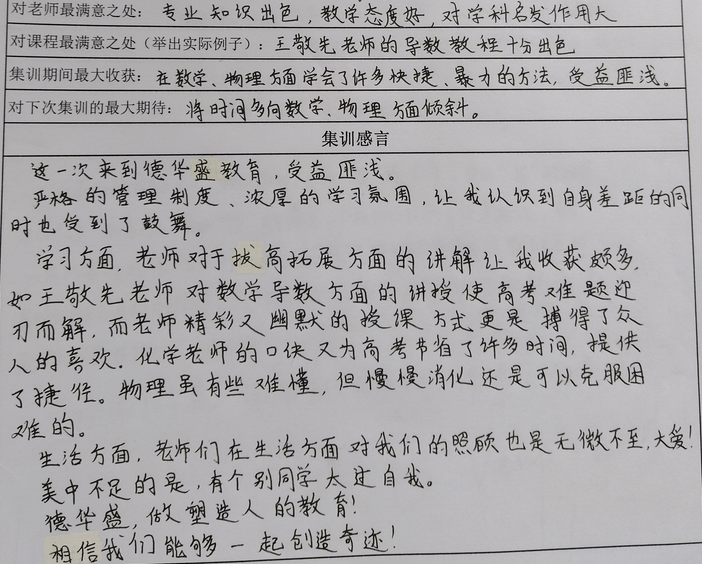 对老师最满意之处：专业知识出色，教学态度好，对学科启发作用大
对课程最满意之处（举出实际例子）：王敬先老师的导数教程十分出色
集训期间最大收获：在数学、物理方面学会了许多快捷、暴力的方法，受益匪浅。
对下次集训的最大期待：将时间多向数学、物理方面倾斜。
集训感言
这一次来到德华盛教育，受益匪浅。
严格的管理制度、浓厚的学习氛围，让我认识到自身差距的同
时也受到了鼓舞。
学习方面，老师对于拔高拓展方面的讲解让我收获颇多，
如王敬先老师对数学导数方面的讲授使高考难题迎
刃而解，而老师精彩又幽默的授课方式更是搏得了众
人的喜欢．化学老师的口诀又为高考节省了许多时间，提供
了捷径。物理虽有些难懂，但慢慢消化还是可以克服困
难的。
生活方面，老师们在生活方面对我们的照顾也是无微不至，大爱！
美中不足的是，有个别同学太过自我。
德华盛，做塑造人的教育！
相信我们能够一起创造奇迹！